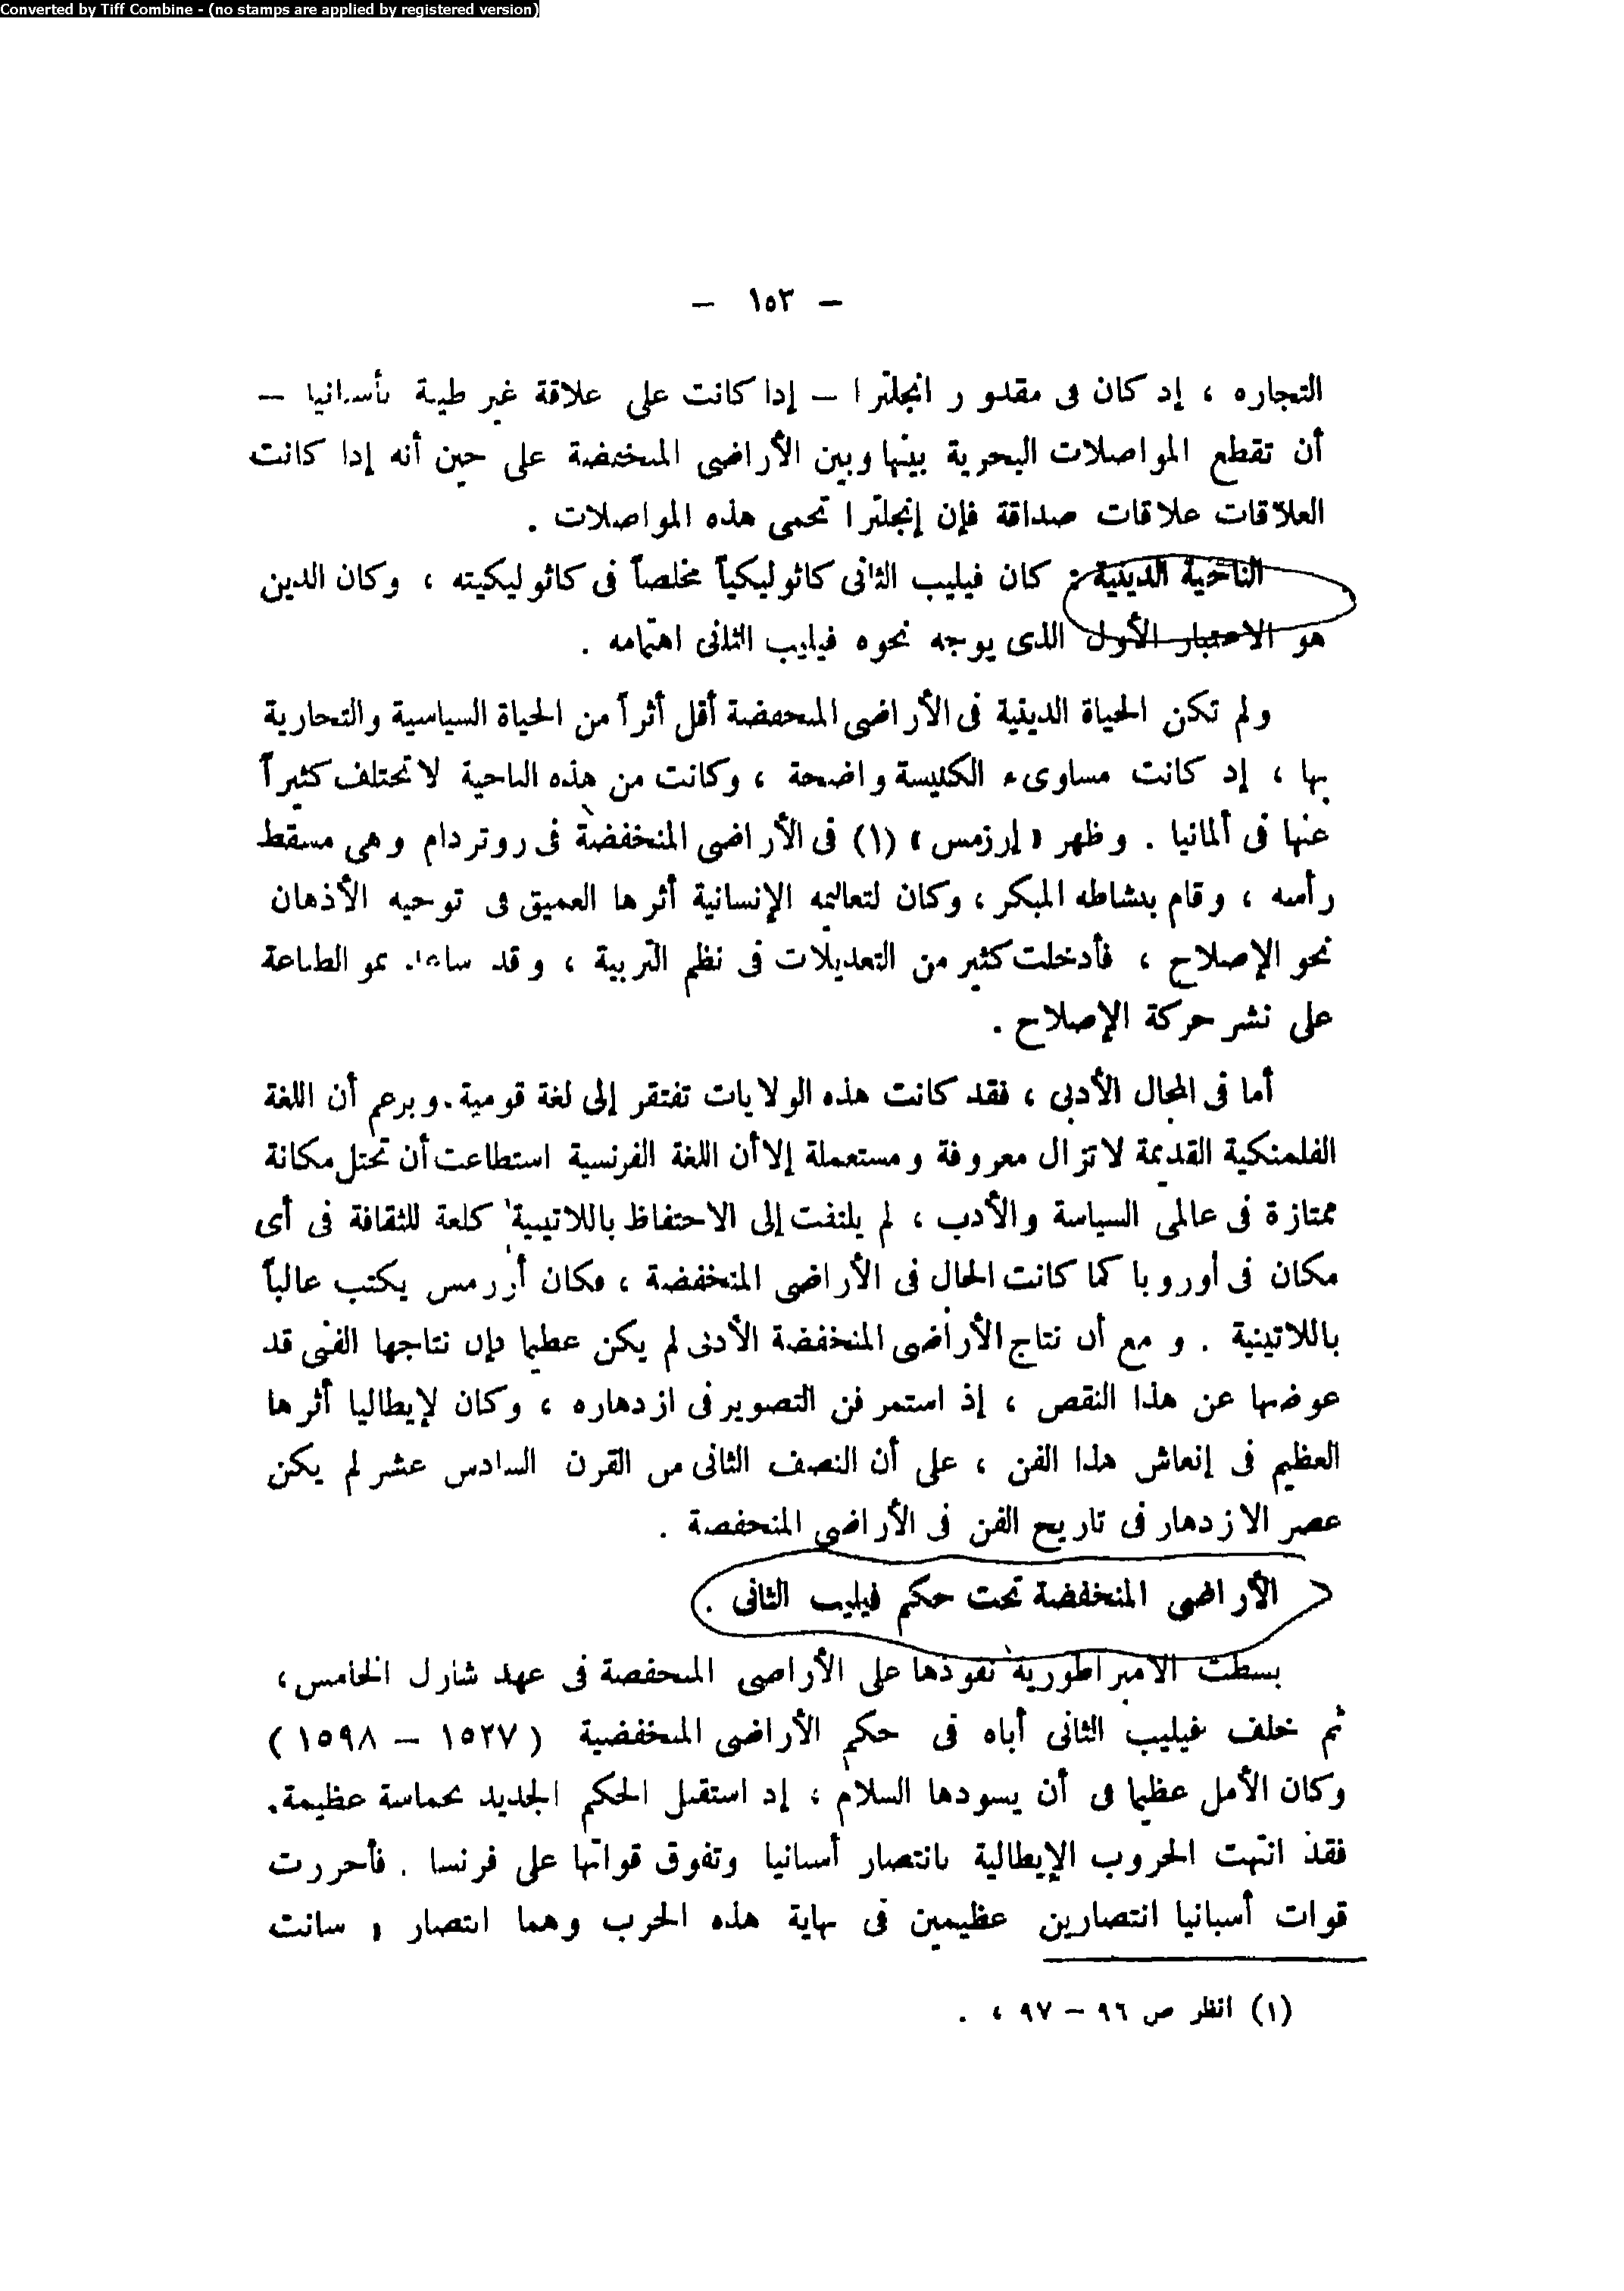 Converted by Tiff Combine - (no stamps are applied by registered version)
— ١٥٣ —
التجاره ، إد كان فى مقدور انجلترا – إدا كانت على علاقة غير طيبة بأسبانيا –
أن تقطع المواصلات البحرية بينها وبين الأراضى المنخفضة على حين أنه إدا كانت
العلاقات علاقات صداقة فإن إنجلترا تحمى هذه المواصلات .
الناحية الدينية : كان فيليب الثانى كاثوليكياً مخلصاً فى كاثوليكيته ، وكان الدين
هو الاعتبار الأول الذى يوجه نحوه فيليب الثانى اهتمامه .
ولم تكن الحياة الدينية فى الأراضى المنخفضة أقل أثراً من الحياة السياسية والتجارية
بها ، إد كانت مساوىء الكنيسة واضحة ، وكانت من هذه الناحية لا تختلف كثيراً
عنها فى ألمانيا . وظهر « إرزمس » (١) فى الأراضى المنخفضة فى روتردام وهى مسقط
رأسه ، وقام بنشاطه المبكر ، وكان لتعاليمه الإنسانية أثرها العميق فى توجيه الأذهان
نحو الإصلاح ، فأدخلت كثير من التعديلات فى نظم التربية ، وقد ساعد نمو الطباعة
على نشر حركة الإصلاح .
أما فى المجال الأدبى ، فقد كانت هذه الولايات تفتقر إلى لغة قومية . وبرغم أن اللغة
الفلمنكية القديمة لا تزال معروفة ومستعملة إلا أن اللغة الفرنسية استطاعت أن تحتل مكانة
ممتازة فى عالمى السياسة والأدب ، لم يلتفت إلى الاحتفاظ باللاتينية كلغة للثقافة فى أى
مكان فى أوروبا كما كانت الحال فى الأراضى المنخفضة ، فكان أرزمس يكتب غالباً
باللاتينية . و مع أن نتاج الأراضى المنخفضة الأدبى لم يكن عظيما فإن نتاجها الفنى قد
عوضها عن هذا النقص ، إذ استمر فن التصوير فى ازدهاره ، وكان لإيطاليا أثرها
العظيم فى إنعاش هذا الفن ، على أن النصف الثانى من القرن السادس عشر لم يكن
عصر الازدهار فى تاريخ الفن فى الأراضى المنخفضة .
الأراضى المنخفضة تحت حكم فيليب الثانى .
بسطت الامبراطورية نفوذها على الأراضى المنخفضة فى عهد شارل الخامس ،
ثم خلف فيليب الثانى أباه فى حكم الأراضى المنخفضية ( ١٥٢٧ – ١٥٩٨ )
وكان الأمل عظيما فى أن يسودها السلام ، إد استقبل الحكم الجديد بحماسة عظيمة .
فقد انتهت الحروب الإيطالية بانتصار أسبانيا وتفوق قواتها على فرنسا . فأحررت
قوات أسبانيا انتصارين عظيمين فى نهاية هذه الحرب وهما انتصار « سانت
(١) انظر ص ٩٦ – ٩٧ ، .